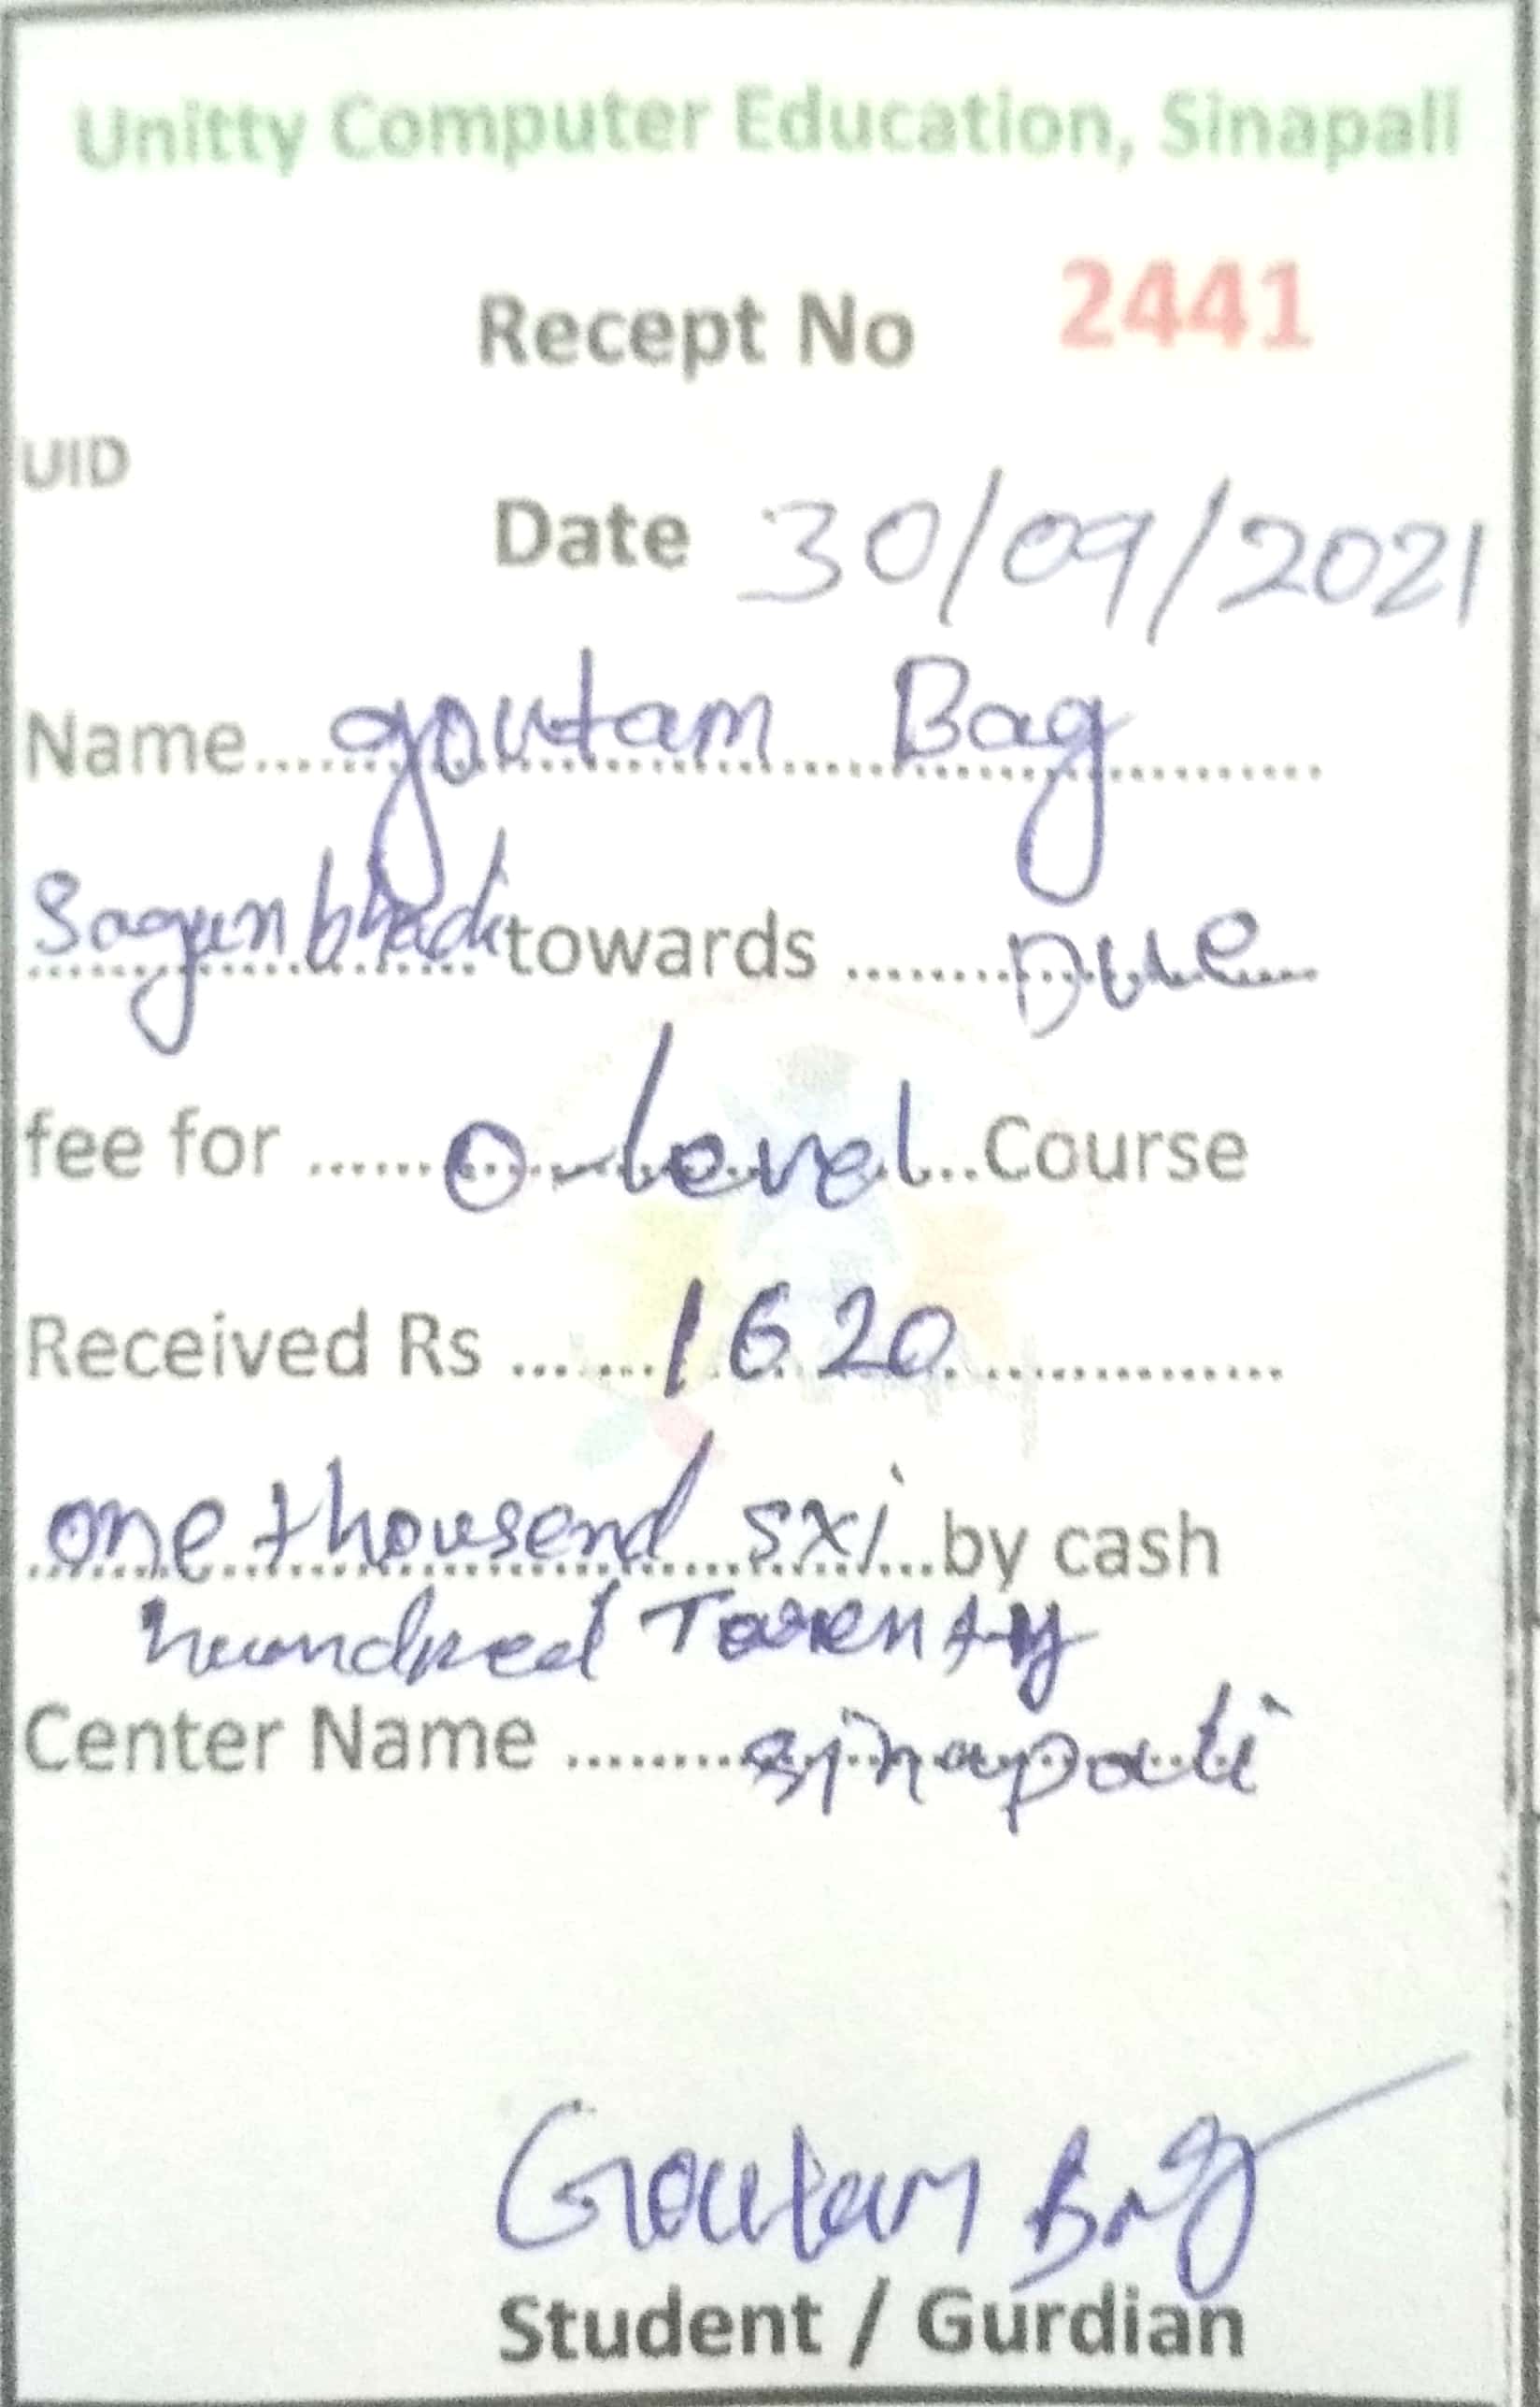 Unitty Computer Education, Sinapali
Recept No 2441
UID
Date 30/09/2021
Name.....goutam Bag.....
Sagunbhadi towards ..... Due
fee for ..... O-level...Course
Received Rs ....... 1620 ..............
one thousend sxi...by cash
hundred Twenty
Center Name ......... sinapali
Goutam Bag
Student / Gurdian